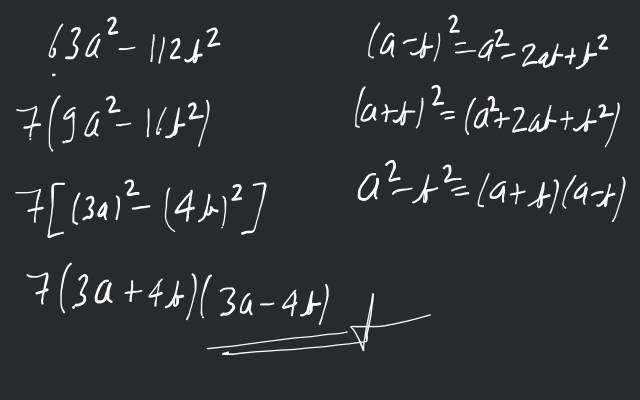 63a² - 112b²
7(9a² - 16b²)
7[(3a)² - (4b)²]
7(3a + 4b)(3a - 4b)
(a-b)² = a² - 2ab + b²
(a+b)² = (a² + 2ab + b²)
a² - b² = (a+b)(a-b)